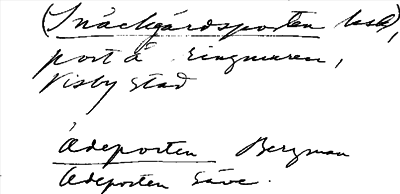 (Snäckgårdsporten ksk),
port å ringmuren,
Visby stad
Ådeporten Bergman
Ådeporten Säve.